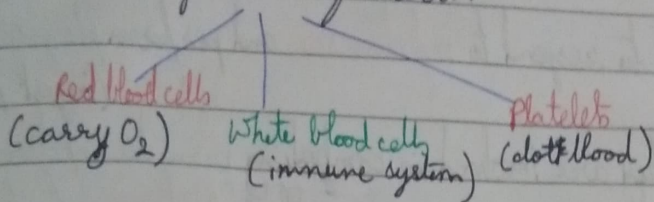 Red blood cells
(carry O2)
White blood cells
(immune system)
Platelets
(clot blood)